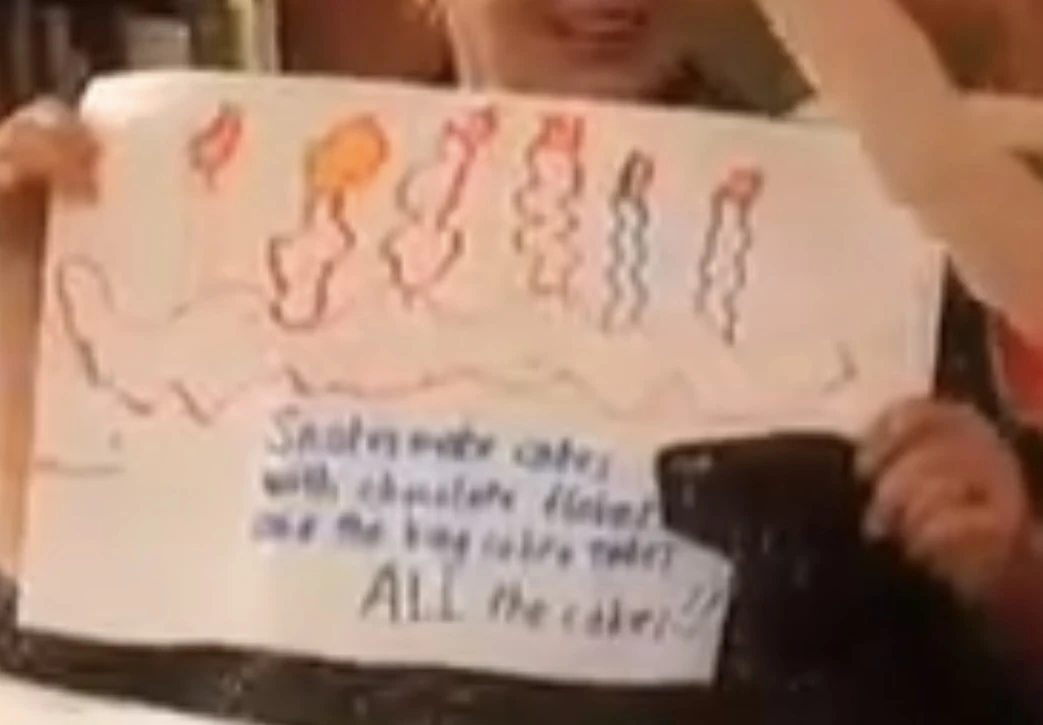 Snakes make cakes
with chocolate flakes
and the king cobra takes
ALL the cakes!!